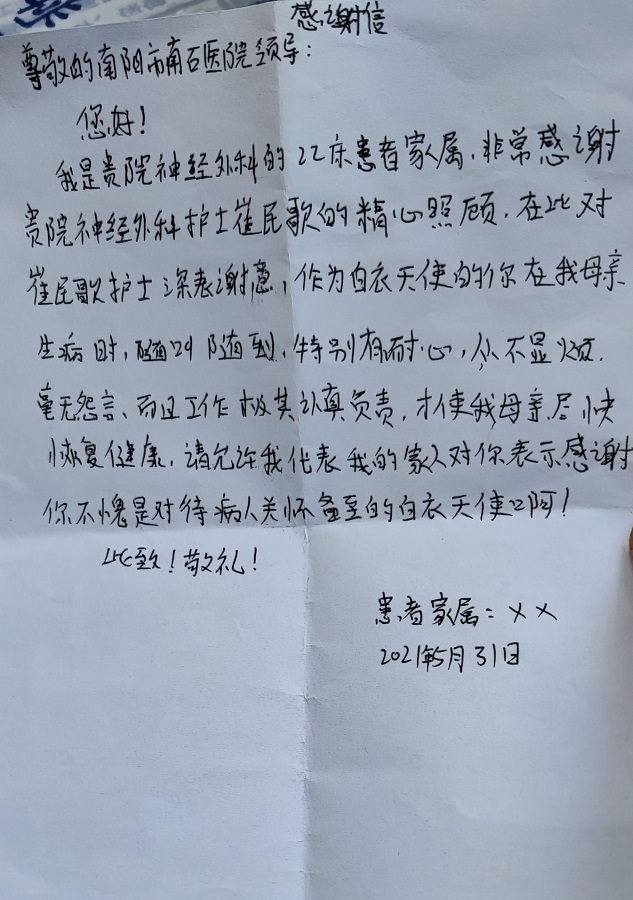 感谢信
尊敬的南阳市南石医院领导:
您好!
我是贵院神经外科的22床患者家属,非常感谢
贵院神经外科护士崔民歌的精心照顾,在此对
崔民歌护士深表谢意,作为白衣天使的你在我母亲
生病时,随叫随到,特别有耐心,从不显烦,
毫无怨言、而且工作极其认真负责,才使我母亲尽快
恢复健康,请允许我代表我的家人对你表示感谢
你不愧是对待病人关怀备至的白衣天使啊!
此致!敬礼!
患者家属:××
2021年5月31日